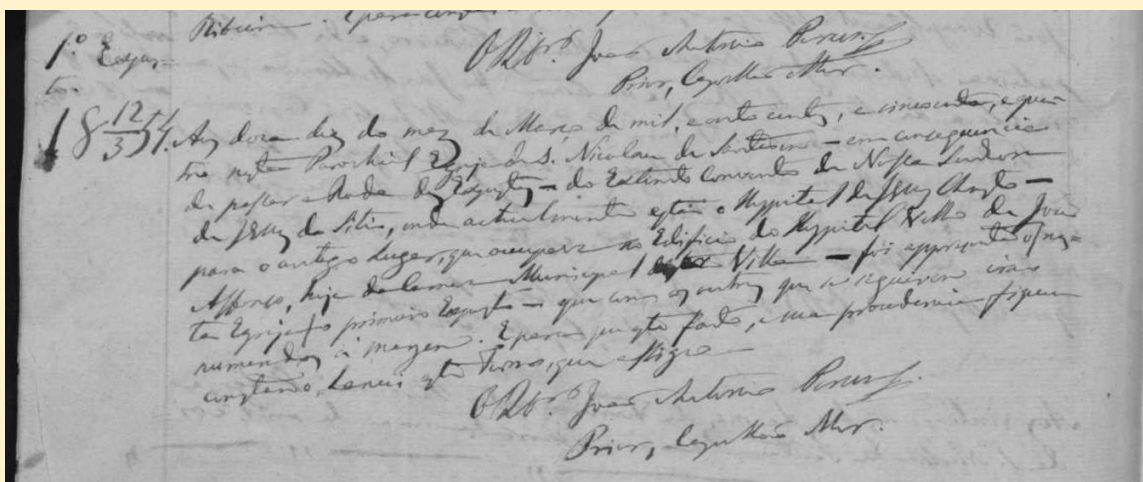 Ribeiro. E para
O R.do João Antonio
Prior, Capellão Mor.
1.º Expos-
to.
18 12/3 54. Aos doze dias do mez de Março de mil, e oito centos, e cincoenta, e qua-
tro nesta Parochial Egreja de S. Nicolau de Santarem - em consequencia
de passar a Roda dos Expostos - do Extincto Convento de Nossa Senhora
de Jesus do Sitio, onde actualmente está o Hospital de Jesus Christo -
para o antigo lugar, que occupava no Edificio do Hospital Velho de João
Affonso, hoje da Camara Municipal desta Villa - foi appresentado nes-
ta Egreja o primeiro Exposto - que com os outros que se seguirem irão
numerados á margem. E para que este facto, e sua providencia fiquem
constando, lancei este Termo, que assigno
O R.do João Antonio
Prior, Capellão Mor.